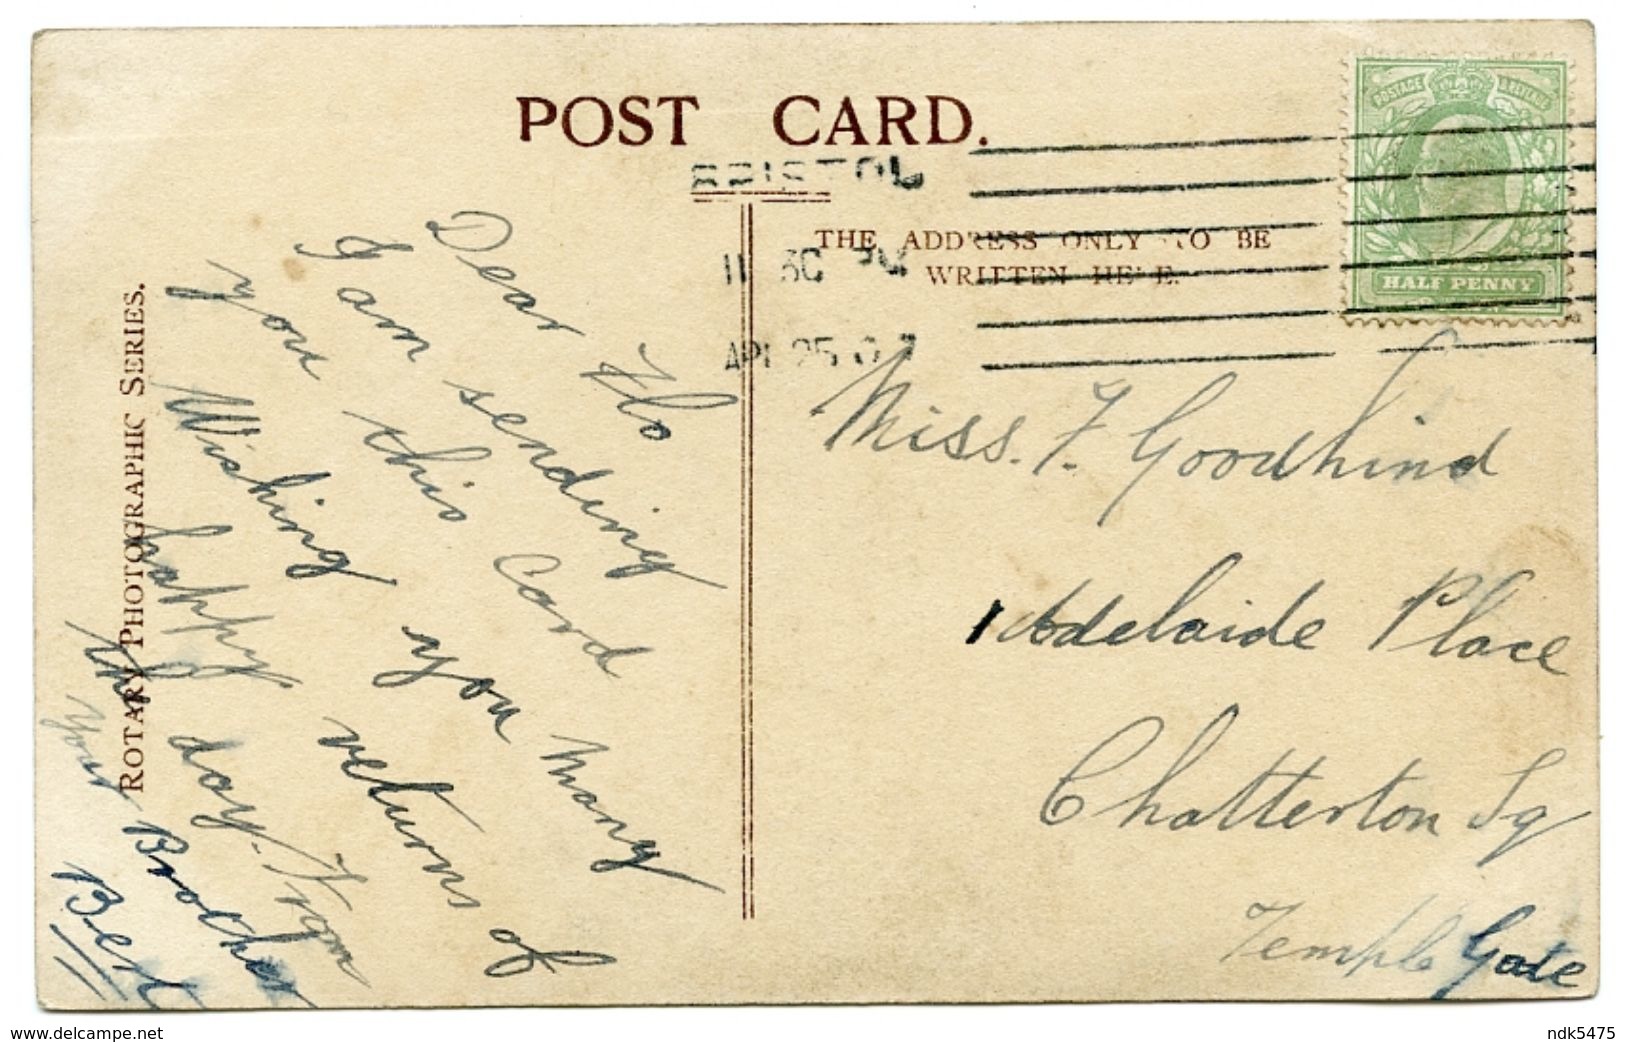 POST CARD.
BRISTOL
11 30 PM
APL 25 07
THE ADDRESS ONLY TO BE
WRITTEN HERE.
POSTAGE & REVENUE
HALF PENNY
ROTARY PHOTOGRAPHIC SERIES.
Dear Flo
I am sending
you this Card
Wishing you many
happy returns of
the day. From
your Brother
Bert
Miss. F. Goodhind
1 Adelaide Place
Chatterton Sq
Temple Gate
www.delcampe.net
ndk5475